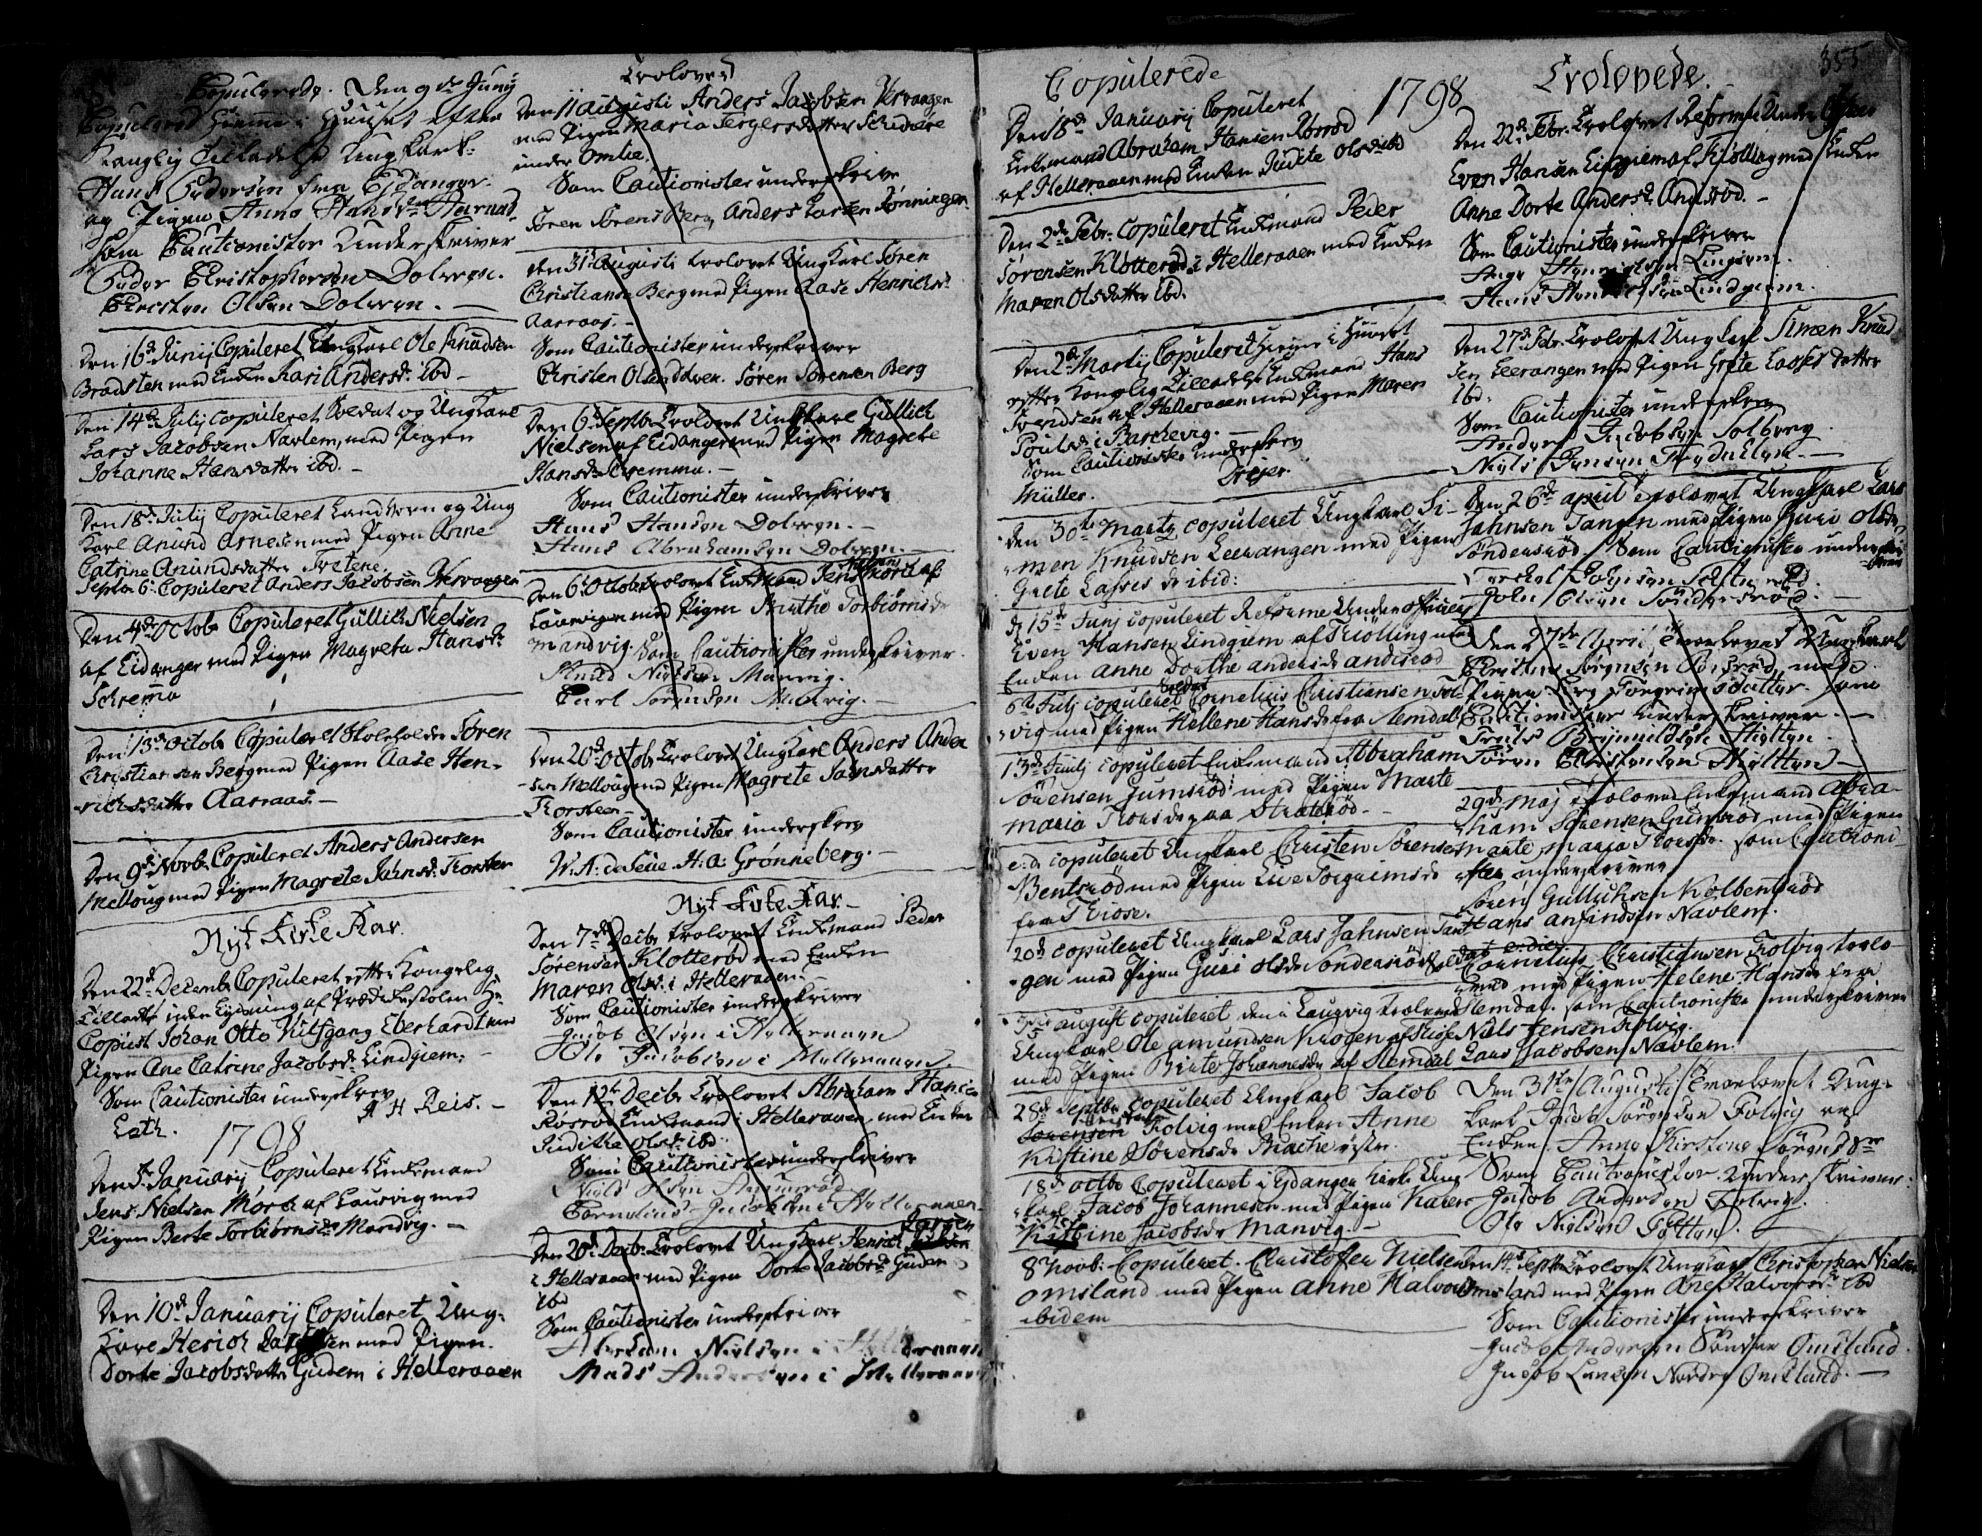 Copulerede. Den 9de Junij
Copulered hiemme i Huuset efter
Kongelig Tilladelse Ungkarl
Hans Gudersen fra Eidanger
og Pigen Anne Hansdr
Som Cautionister Underskriver
Christophersen Dolven.
Christen Olsen Dolven. —
Den 16de Junij Copuleret Ungkarl Ole Knudsen
Bradsten med Enken Kari Andersdr. Ibd —
Den 14de Julij Copuleret Soldat og Ungkarl
Lars Jacobsen Navlem, med Pigen
Johanne Hansdatter ibd. —
Den 18de Julij Copuleret Landvern og Ung
Karl Anund Arnesen med Pigen Anne
Catrine Anundsdatter Tvetene.
Septbr 6. Copuleret Anders Jacobsen Hervaagen
Den 4de Octobr Copuleret Gullich Nielsen
af Eidanger med Pigen Magreta Hansdr
Skremma
Den 13de Octobr Copuleret Skoleholder Søren
Christiansen Berg med Pigen Aase Hen-
richsdatter Aarraas. —
Den 9de Novbr Copuleret Anders Andersen
Melloug med Pigen Magrete Jahnsdr. Torsten
Nyt Kirke Aar.
Den 22de Decembr Copuleret efter Kongelig
Tilladelse uden Lysning af Prædikestolen Hr.
Copiist Johan Otto Wulfgang Eberhardt med
Pigen Ane Catrine Jacobsdr. Lindgiem. —
Som Cautionister underskrev
H Reis. —
1798
Den 5. Januarij Copuleret Enkemand
Jens Nielsen Mørch af Laurvig med
Pigen Berte Torbiørnsdr Mandvig. —
Den 10de Januarij Copuleret Ung-
karl Henrich Larsen med Pigen
Dorte Jacobsdatter Gudem i Helleraaen
Trolovet
Den 11 Augusti Anders Jacobsen Hervaagen
med Pigen Maria Jergersdatter
under Omlie.
Som Cautionister underskrive
Søren Sørens Berg Anders Larsen Rønningen
Den 31te Augusti trolovet Ungkarl Søren
Christiansen Berg med Pigen Aase Henrichsdr
Aarraas. —
Som Cautionister underskriver
Christen Olsen Dolven. Søren Sørensen Berg
Den 6te Septbr Trolovet Ungkarl Gullich
Nielsen af Eidanger med Pigen Magrete
Hansdr Skremma. —
Som Cautionister underskriver
Hans Hansen Dolven. —
Hans Abrahamsen Dolven. —
Den 6te Octobr trolovet Enkemand Jens Nielsen Mørch af
Laurvigen med Pigen Birthe Torbiørnsdr
Mandvig. Som Cautionister underskriver.
Knud Nielsen Manvig.
Carl Sørensen Manvig. —
Den 20de Octobr Trolovet Ungkarl Anders Ander
sen Melloug med Pigen Magrete Jahnsdatter
Torsteen
Som Cautionister underskrev
W. A: de Seue H. A: Grønneberg. —
Nyt Kirke Aar. —
Den 7de Decbr trolovet Enkemand Peder
Sørensen Klotterød med Enken
Maren Olsdr. i Helleraaen. —
Som Cautionister underskriver
Jacob Olsen i Helleraaen
Ole Jacobsen i Helleraaen
Den 12te Decbr Trolovet Abraham Hansen
Rørrød Enkemand i Helleraaen, med Enken
Juditha Olsdr. ibd.
Som Cautionister underskriver
Niels Olsen
Cornelius Jacobsen i Helleraaen.
Den 20de Decbr Trolovet Ungkarl Henrich Larsen
i Helleraaen med Pigen Dorte Jacobsdr Gudem
ibd
Som Cautionister underskriver
Abraham Nielsen i Helleraaen
Mads Andersen i Helleraaen
Copulerede
1798
Den 18de Januarij Copuleret
Enkemand Abraham Hansen Rørrød
af Helleraaen med Enken Judite Olsdr ibd
Den 2de Febr: Copuleret Enkemand Peder
Sørensen Klotterød i Helleraaen med Enken
Maren Olsdatter Ibd.
Den 2de Martij Copuleret hiemme i Huuset
efter Kongelig Tilladelse Enkemand Hans
Svendsen af Helleraaen med Pigen Maren
Poulsdr i Barchevig. —
Som Cautionister underskrev
Müller. Drejer.
Den 30te Marty copuleret Ungkarl Si-
men Knudsen Leerangen med Pigen
Grete Lasses dr ibid:
d 15de Junj copuleret Reforme Underofficier
Even Hansen Lindgiem af Kiølling med
Enken Anne Dorthe andersdr andisrød
6te Julj copuleret Soldat Cornelius Christiansen Fol-
vig med Pigen Hellene Hansdr fra Stemdal
13de Julj copuleret Enkemand Abraham
Sørensen Gumsrød med Pigen Marte
Maria Torsdr paa Straterød. —
e: d: copuleret Ungkarl Christen Sørensen
Bentsrød med Pigen Live Torgrimsdr
fra Tiose.
20de copuleret Ungkarl Lars Jahnsen Tan-
gen med Pigen Guri Olsdr Søndersrød
august copuleret den i Laurvig trolovede
Ungkarl Ole Amundsen Krogen af
med Pigen Birte Johannesdr af Stemdal
28de Septbr copuleret Ungkarl Jacob
Sørensen Folvig med Enken Anne
Kirstine Sørensdr
18de octbr copuleret i Eydanger Kirke Ung
karl Jacob Johannesen med Pigen Karen
Kirstine Jacobsdr Manvig —
8 Novb: Copuleret. Christoffer Nielsen
Omsland med Pigen Anne Halvorsdr
ibidem
Trolovede.
355
Den 22de Febr. Trolovet Reformeret Under Officer
Even Hansen Lindgiem af Kiølling med Enken
Anne Dorte Andersdr. Andisrød. —
Som Cautionister underskriver
Lindgiem.
Hans Lindgiem.
Den 27de Febr. Trolovet Ungkarl Simen Knud
sen Leerangen med Pigen Grete Lasses datter
ibd.
Som Cautionister underskrev
Anders Jacobsen Solberg
Niels Jensen
Den 26de april trolovet Ungkarl Lars
Jahnsen Tangen med Pigen Guri Olsdr
Søndersrød. Som Cautionister underskri
ver
John Olsen Søndersrød. —
Den 27de April Trolovet Ungkarl
Christen Sørensen Bentsrød, med
Pigen Live Torgrimsdatter. Som
Cautionister Underskriver. —
Troels
Søren Christensen —
29de Maj Trolovet Enkemand Abra-
ham Sørensen Gumsrød med Pigen
Marte Maria Torsdr. som Cautioni
ster underskriver
Søren Gullichsen Kolbensrød
Hans Anfindsen Navlem.
Cornelius Christiansen Folvig trolo-
vet med Pigen Helene Hansdr fra
Stemdal. som Cautionister underskriver
Niels Jensen Folvig.
Lars Jacobsen Navlem.
Den 31te Augusti Trolovet Ung-
karl Jacob Sørensen Folvig og
Enken Anne Kirstine Sørensdr
Som Cautionister Underskriver.
Jacob Andersen Folvig.
Ole Nielsen
Den 14de Septbr Trolovet Ungkarl Christopher Nielsen
Omsland med Pigen Ane Halvorsdr ibd
Som Cautionister underskriver
Jacob Andersen Søndre Omsland.
Jacob Larsen Nordre Omsland. —